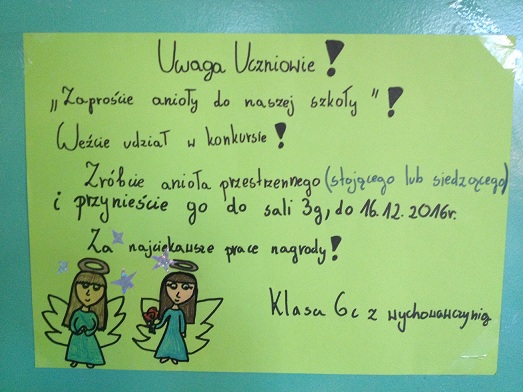 Uwaga Uczniowie!
„Zaproście anioły do naszej szkoły"!
Weźcie udział w konkursie!
Zróbcie anioła przestrzennego (stojącego lub siedzącego)
i przynieście go do sali 3g, do 16.12.2016r.
Za najciekawsze prace nagrody!
Klasa 6c z wychowawczynią